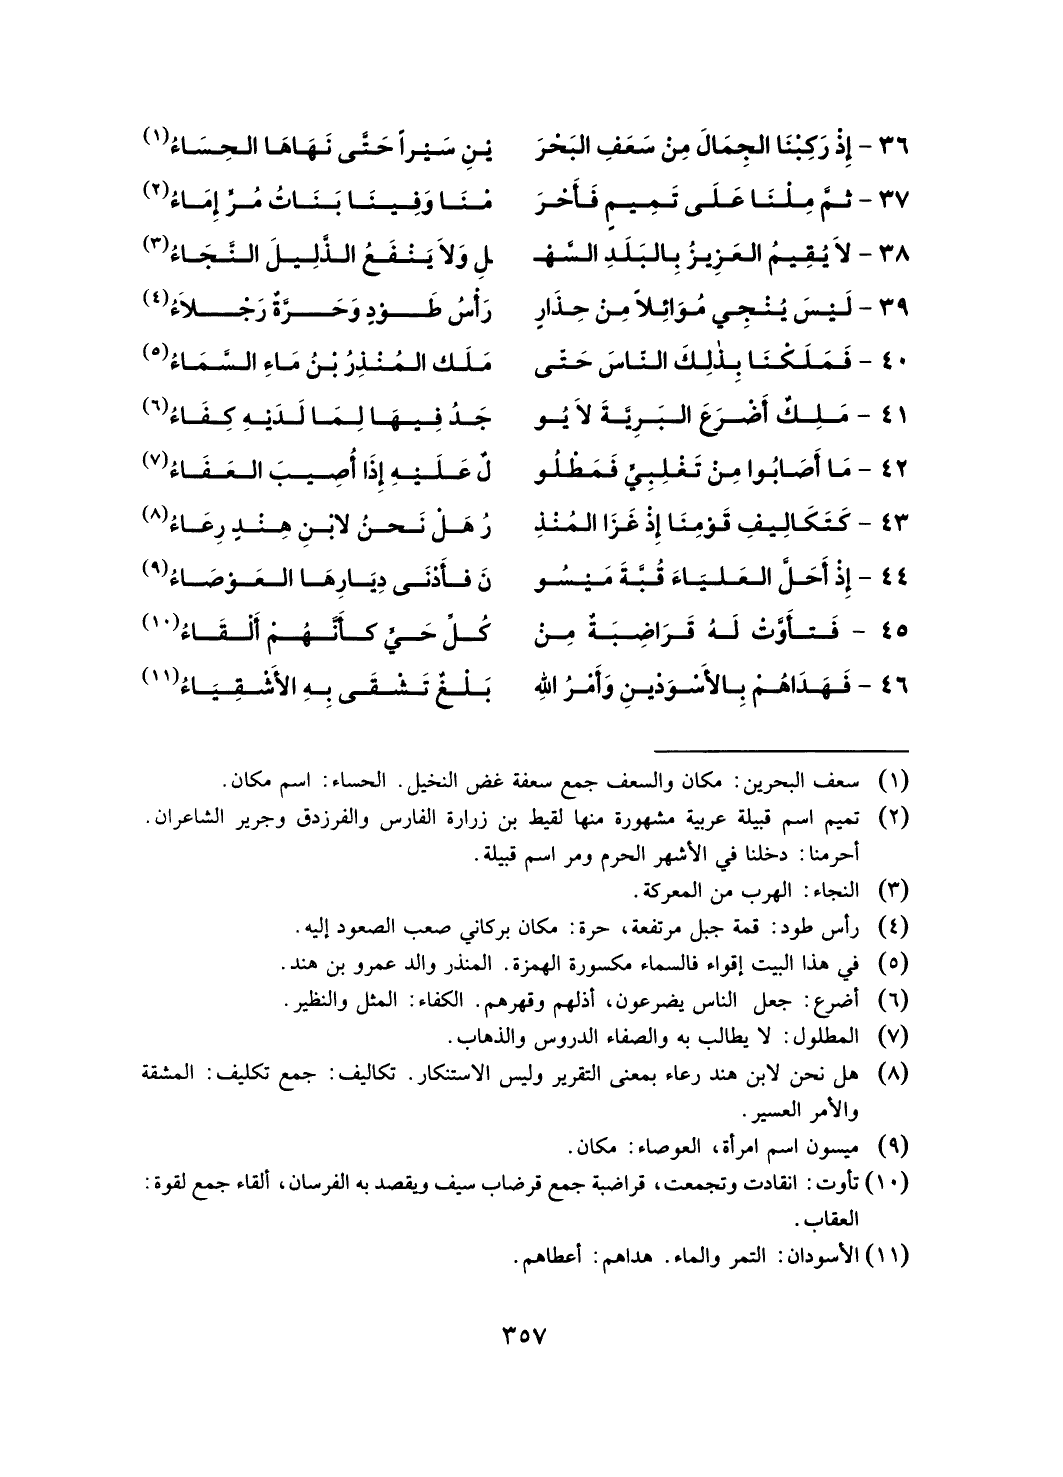 ٣٦ - إِذْ رَكِبْنَا الجِمَالَ مِنْ سَعَفِ البَحْرَ يْنِ سَيْراً حَتَّى نَهَاهَا الحِسَاءُ(١)
٣٧ - ثمَّ مِلْنَا عَلَى تَمِيمٍ فَأَحْرَ مْنَا وَفِينَا بَنَاتُ مُرٍّ إِمَاءُ(٢)
٣٨ - لاَ يُقِيمُ العَزِيزُ بِالبَلَدِ السَّهْـ ـلِ وَلاَ يَنْفَعُ الذَّلِيلَ النَّجَاءُ(٣)
٣٩ - لَيْسَ يُنْجِي مُوَائِلاً مِنْ حِذَارٍ رَأْسُ طَوْدٍ وَحَرَّةٌ رَجْلاَءُ(٤)
٤٠ - فَمَلَكْنَا بِذٰلِكَ النَّاسَ حَتَّى مَلَكَ المُنْذِرُ بْنُ مَاءِ السَّمَاءُ(٥)
٤١ - مَلِكٌ أَضْرَعَ البَرِيَّةَ لاَ يُو جَدُ فِيهَا لِمَا لَدَيْهِ كِفَاءُ(٦)
٤٢ - مَا أَصَابُوا مِنْ تَغْلِبِيٍّ فَمَطْلُو لٌ عَلَيْهِ إِذَا أُصِيبَ العَفَاءُ(٧)
٤٣ - كَتَكَالِيفِ قَوْمِنَا إِذْ غَزَا المُنْذِ رُ هَلْ نَحنُ لابْنِ هِنْدٍ رِعَاءُ(٨)
٤٤ - إِذْ أَحَلَّ العَلْيَاءَ قُبَّةَ مَيْسُو نَ فَأَدْنَى دِيَارِهَا العَوْصَاءُ(٩)
٤٥ - فَتَأَوَّتْ لَهُ قَرَاضِبَةٌ مِنْ كُلِّ حَيٍّ كَأَنَّهُمْ أَلْقَاءُ(١٠)
٤٦ - فَهَدَاهُمْ بِالأَسْوَدَيْنِ وَأَمْرُ اللهِ بَلْغٌ تَشْقَى بِهِ الأَشْقِيَاءُ(١١)
(١) سعف البحرين: مكان والسعف جمع سعفة غض النخيل. الحساء: اسم مكان.
(٢) تميم اسم قبيلة عربية مشهورة منها لقيط بن زرارة الفارس والفرزدق وجرير الشاعران.
أحرمنا: دخلنا في الأشهر الحرم ومر اسم قبيلة.
(٣) النجاء: الهرب من المعركة.
(٤) رأس طود: قمة جبل مرتفعة، حرة: مكان بركاني صعب الصعود إليه.
(٥) في هذا البيت إقواء فالسماء مكسورة الهمزة. المنذر والد عمرو بن هند.
(٦) أضرع: جعل الناس يضرعون، أذلهم وقهرهم. الكفاء: المثل والنظير.
(٧) المطلول: لا يطالب به والصفاء الدروس والذهاب.
(٨) هل نحن لابن هند رعاء بمعنى التقرير وليس الاستنكار. تكاليف: جمع تكليف: المشقة
والأمر العسير.
(٩) ميسون اسم امرأة، العوصاء: مكان.
(١٠) تأوت: انقادت وتجمعت، قراضبة جمع قرضاب سيف ويقصد به الفرسان، ألقاء جمع لقوة:
العقاب.
(١١) الأسودان: التمر والماء. هداهم: أعطاهم.
٣٥٧